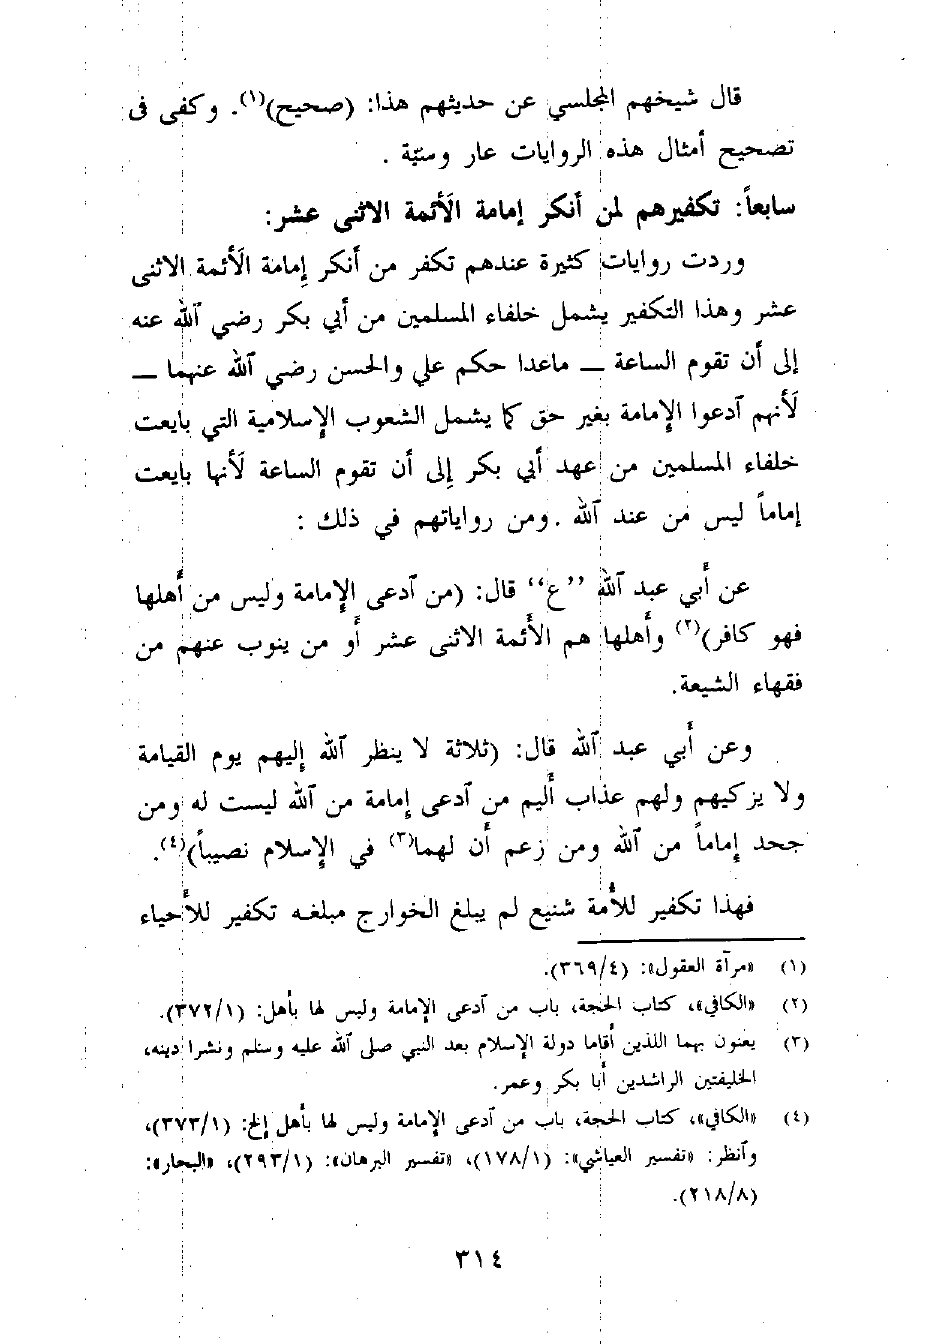 قال شيخهم المجلسي عن حديثهم هذا: (صحيح)(١). وكفى فى
تصحيح أمثال هذه الروايات عار وسبّة .
سابعاً: تكفيرهم لمن أنكر إمامة الأئمة الاثنى عشر:
وردت روايات كثيرة عندهم تكفر من أنكر إمامة الأئمة الاثنى
عشر وهذا التكفير يشمل خلفاء المسلمين من أبي بكر رضي ٱلله عنه
إلى أن تقوم الساعة ــ ماعدا حكم علي والحسن رضي ٱلله عنهما ــ
لأنهم ٱدعوا الإمامة بغير حق كما يشمل الشعوب الإسلامية التي بايعت
خلفاء المسلمين من عهد أبي بكر إلى أن تقوم الساعة لأنها بايعت
إماماً ليس من عند ٱلله . ومن رواياتهم في ذلك :
عن أبي عبد ٱلله ’’ع‘‘ قال: (من ٱدعى الإمامة وليس من أهلها
فهو كافر)(٢) وأهلها هم الأئمة الاثنى عشر أو من ينوب عنهم من
فقهاء الشيعة.
وعن أبي عبد ٱلله قال: (ثلاثة لا ينظر ٱلله إليهم يوم القيامة
ولا يزكيهم ولهم عذاب أليم من ٱدعى إمامة من ٱلله ليست له ومن
جحد إماماً من ٱلله ومن زعم أن لهما(٣) في الإسلام نصيباً)(٤).
فهذا تكفير للأمة شنيع لم يبلغ الخوارج مبلغه تكفير للأحياء
(١) «مرآة العقول»: (٣٦٩/٤).
(٢) «الكافي»، كتاب الحجة، باب من ٱدعى الإمامة وليس لها بأهل: (٣٧٢/١).
(٣) يعنون بهما اللذين أقاما دولة الإسلام بعد النبي صلى ٱلله عليه وسلم ونشرا دينه،
الخليفتين الراشدين أبا بكر وعمر.
(٤) «الكافي»، كتاب الحجة، باب من ٱدعى الإمامة وليس لها بأهل إلخ: (٣٧٣/١)،
وٱنظر: «تفسير العياشي»: (١٧٨/١)، «تفسير البرهان»: (٢٩٣/١)، «البحار»:
(٢١٨/٨).
٣١٤